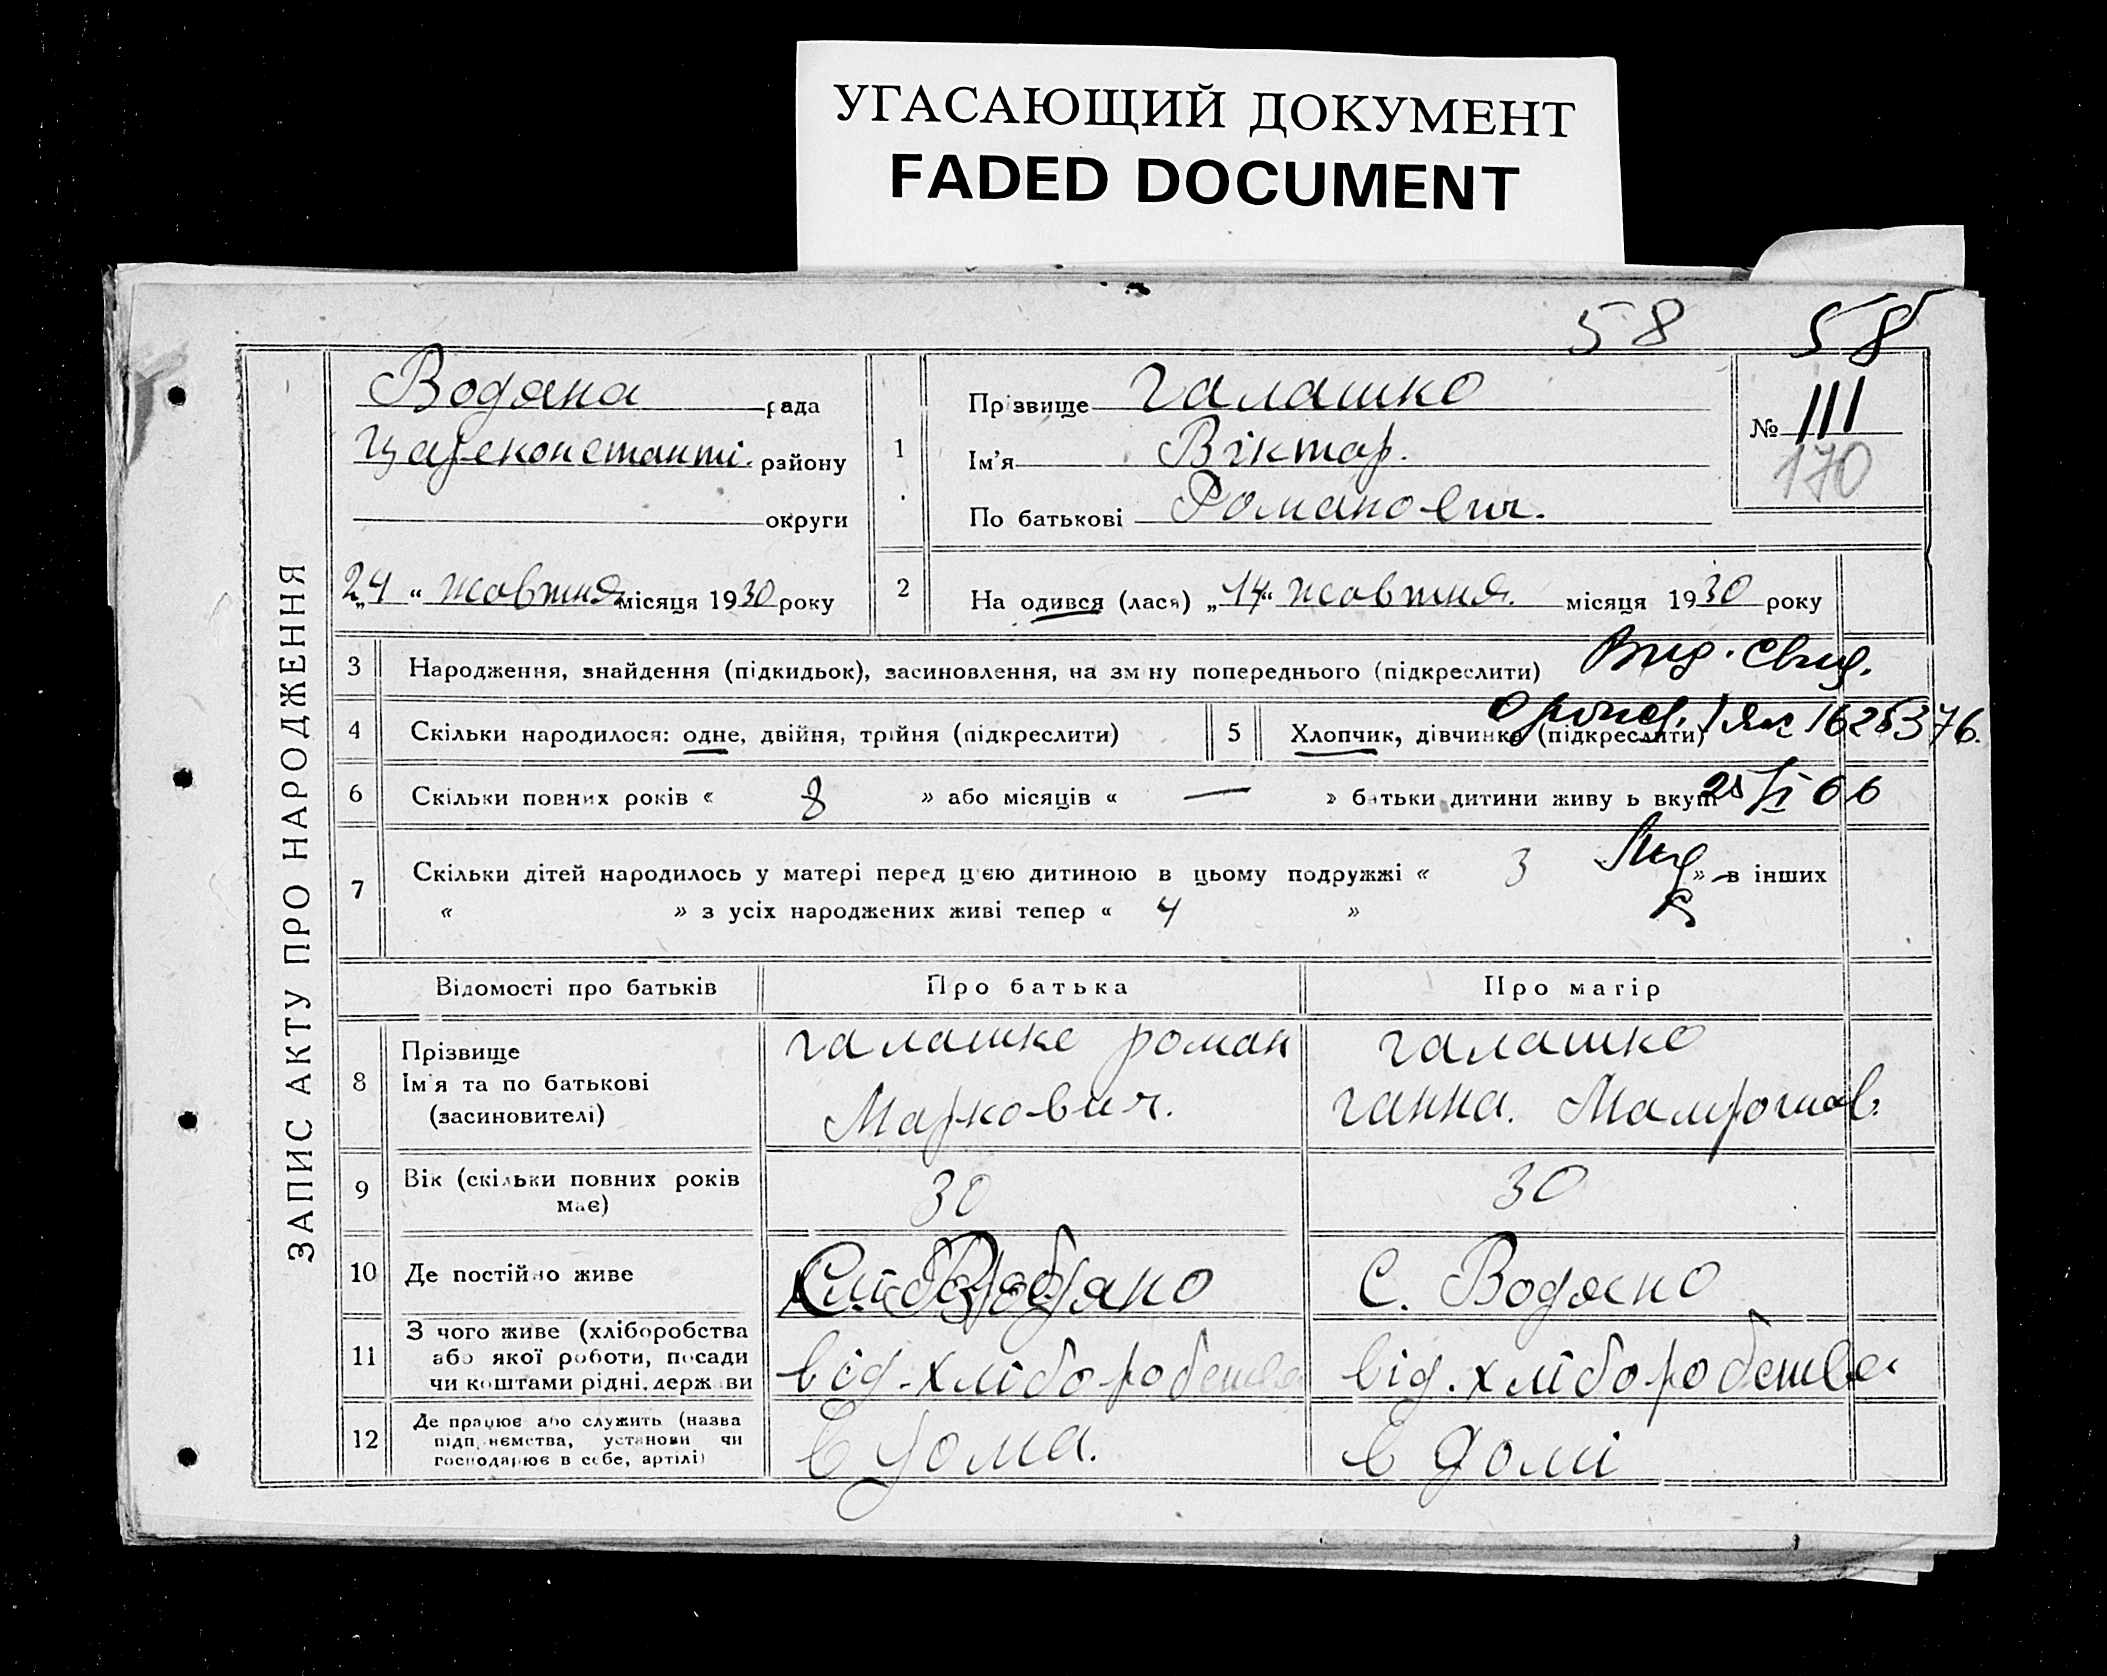 УГАСАЮЩИЙ ДОКУМЕНТ
FADED DOCUMENT
58 58
ЗАПИС АКТУ ПРО НАРОДЖЕННЯ
Водяна рада
Цареконстанті. району
округи
„24“ жовтня місяця 1930 року
1
Прізвище Галашко
Ім'я Віктар.
По батькові Романович.
№ 111
170
2 На одився (лася) „14“ жовтня. місяця 1930 року
3 Народження, знайдення (підкидьок), засиновлення, на зміну попереднього (підкреслити)
Вид. свид.
4 Скільки народилося: одне, двійня, трійня (підкреслити)
5 Хлопчик, дівчинка (підкреслити)
1625376.
6 Скільки повних років « 8 » або місяців « — » батьки дитини живуть вкупі
25/VI 66
7 Скільки дітей народилось у матері перед цією дитиною в цьому подружжі « 3 » — в інших
« » з усіх народжених живі тепер « 4 »
Відомості про батьків Про батька Про матір
8 Прізвище
Ім'я та по батькові
(засиновителі)
Галашко роман
Маркович.
Галашко
Ганна.
9 Вік (скільки повних років
має)
30 30
10 Де постійно живе
Водяно С. Водяно
11 З чого живе (хліборобства
або якої роботи, посади
чи коштами рідні, держави
від. хліборобства від. хліборобства
12 Де працює або служить (назва
підприємства, установи чи
господарює в себе, артілі)
в дома. в домі